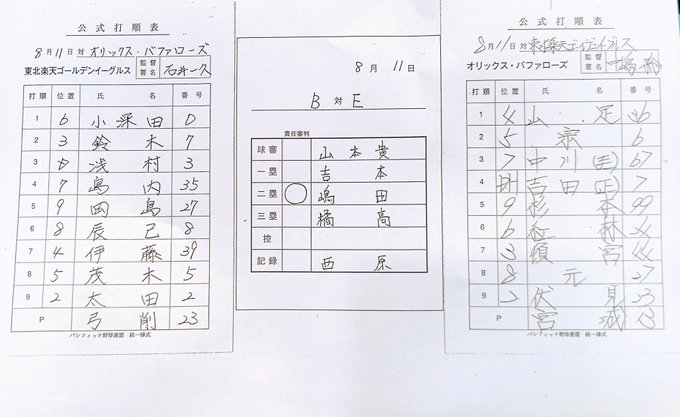 公式打順表
8月11日 対 オリックス・バファローズ
東北楽天ゴールデンイーグルス 監督署名 石井一久
打順 位置 氏名 番号
1 6 小深田 0
2 3 鈴木 7
3 D 浅村 3
4 7 島内 35
5 9 岡島 27
6 8 辰己 8
7 4 伊藤 39
8 5 茂木 5
9 2 太田 2
P 弓削 23
パシフィック野球連盟 統一様式
8月11日
B 対 E
責任審判
球審 山本貴
一塁 吉本
二塁 ○ 嶋田
三塁 橘高
控
記録 西原
公式打順表
8月11日 対 東北楽天ゴールデンイーグルス
オリックス・バファローズ 監督署名
打順 位置 氏名 番号
1 4 山足 36
2 5 宗 6
3 7 中川(圭) 67
4 吉田(正) 7
5 9 杉本 99
6 6 紅林 24
7 3 頓宮 44
8 8 元 27
9 2 伏見 23
P 宮城 13
パシフィック野球連盟 統一様式